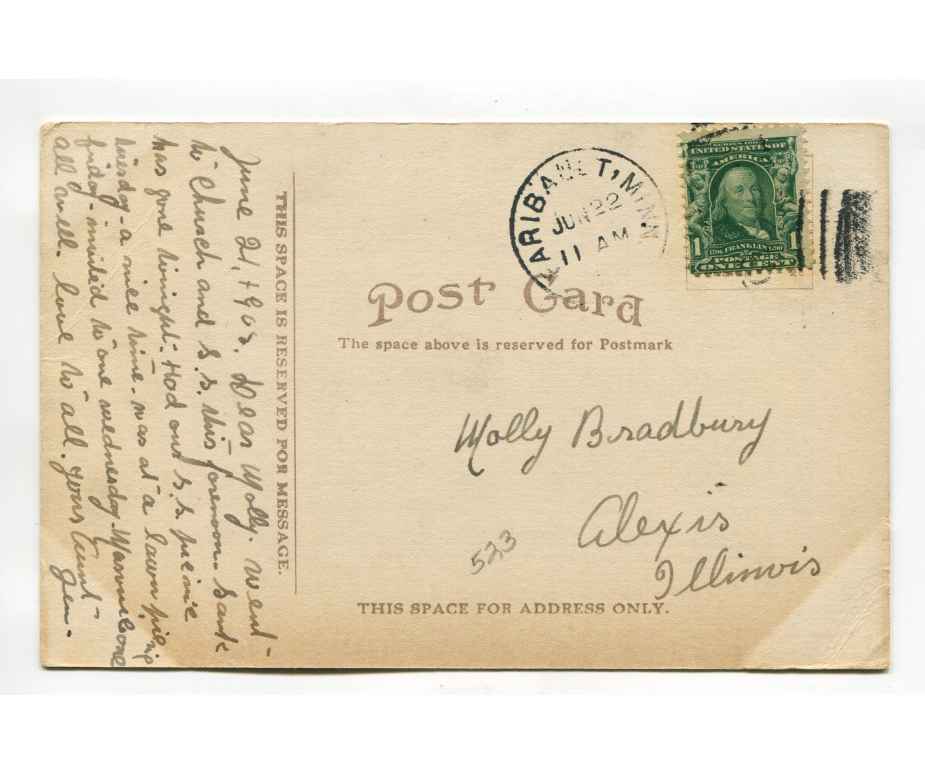 June 21, 190 . Dear Molly. Went-
to Church and S.S. this forenoon. Sank
has gone tonight. Had our S.S. picnic
tuesday - a nice time - was at a lawn
friday - invited to one wednesday.
all well. love to all. yours Aunt -
Jen.
THIS SPACE IS RESERVED FOR MESSAGE.
FARIBAULT, MINN
JUN 22
11 AM
UNITED STATES OF
AMERICA
1 FRANKLIN 1
POSTAGE
ONE CENT
Post Card
The space above is reserved for Postmark
Molly Bradbury
Alexis
Illinois
523
THIS SPACE FOR ADDRESS ONLY.